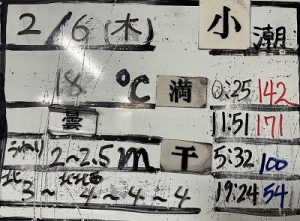 2/6(木) 小潮
18℃ 満 0:25 142
曇 11:51 171
うねり 2~2.5m 干 5:32 100
北 北北西 19:24 54
3~4~4~4